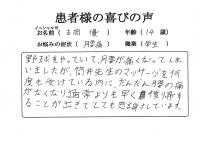 患者様の喜びの声
イニシャル可
お名前（吉岡 優） 年齢（14 歳）
お悩みの症状（月要痛） 職業（学生）
野球をやっていて、月要が痛くなってしま
いましたが、筒井先生のマッサージを何
度も受けている内に、だんだん月要の痛み
がなくなり通常よりも早く直復帰する
ことが出きてとても感謝しています。